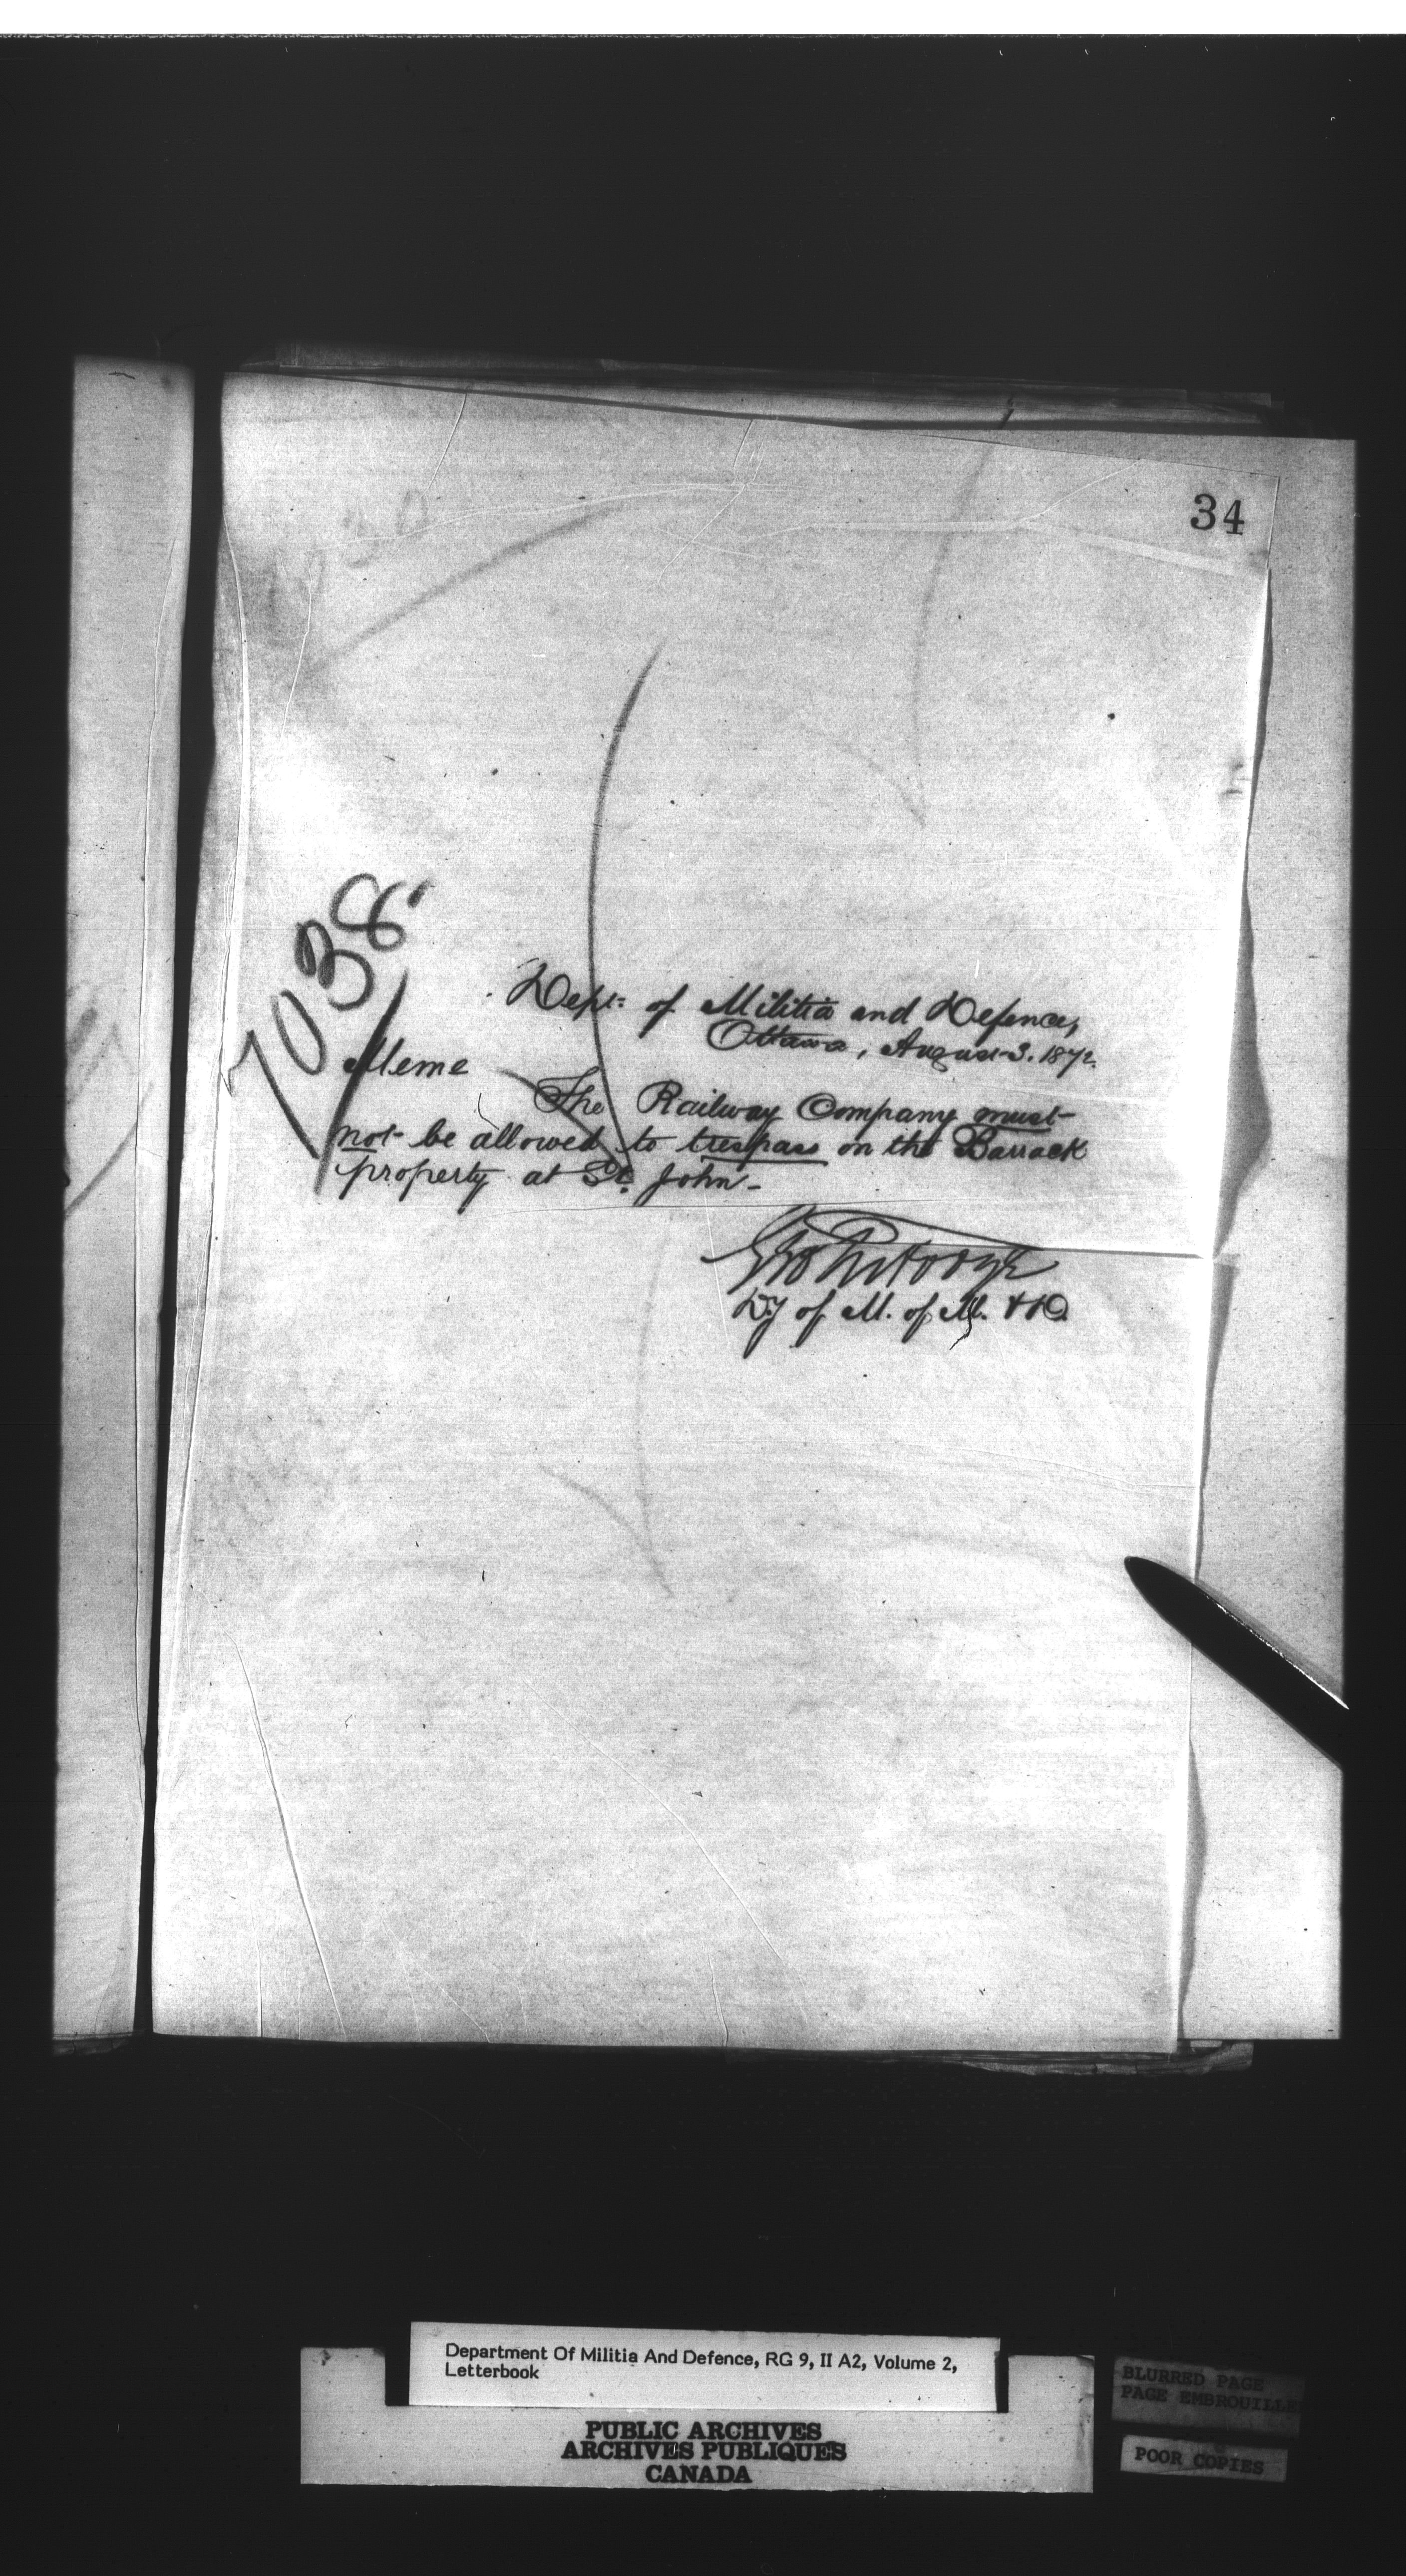 34
7038
Dept. of Militia and Defence,
Ottawa, August 3. 1872.
Memo
The Railway Company must
not be allowed to trespass on the Barrack
property at St. John -
Dy of M. of M. & D.
Department Of Militia And Defence, RG 9, II A2, Volume 2,
Letterbook
PUBLIC ARCHIVES
ARCHIVES PUBLIQUES
CANADA
BLURRED PAGE
PAGE EMBROUILLE
POOR COPIES